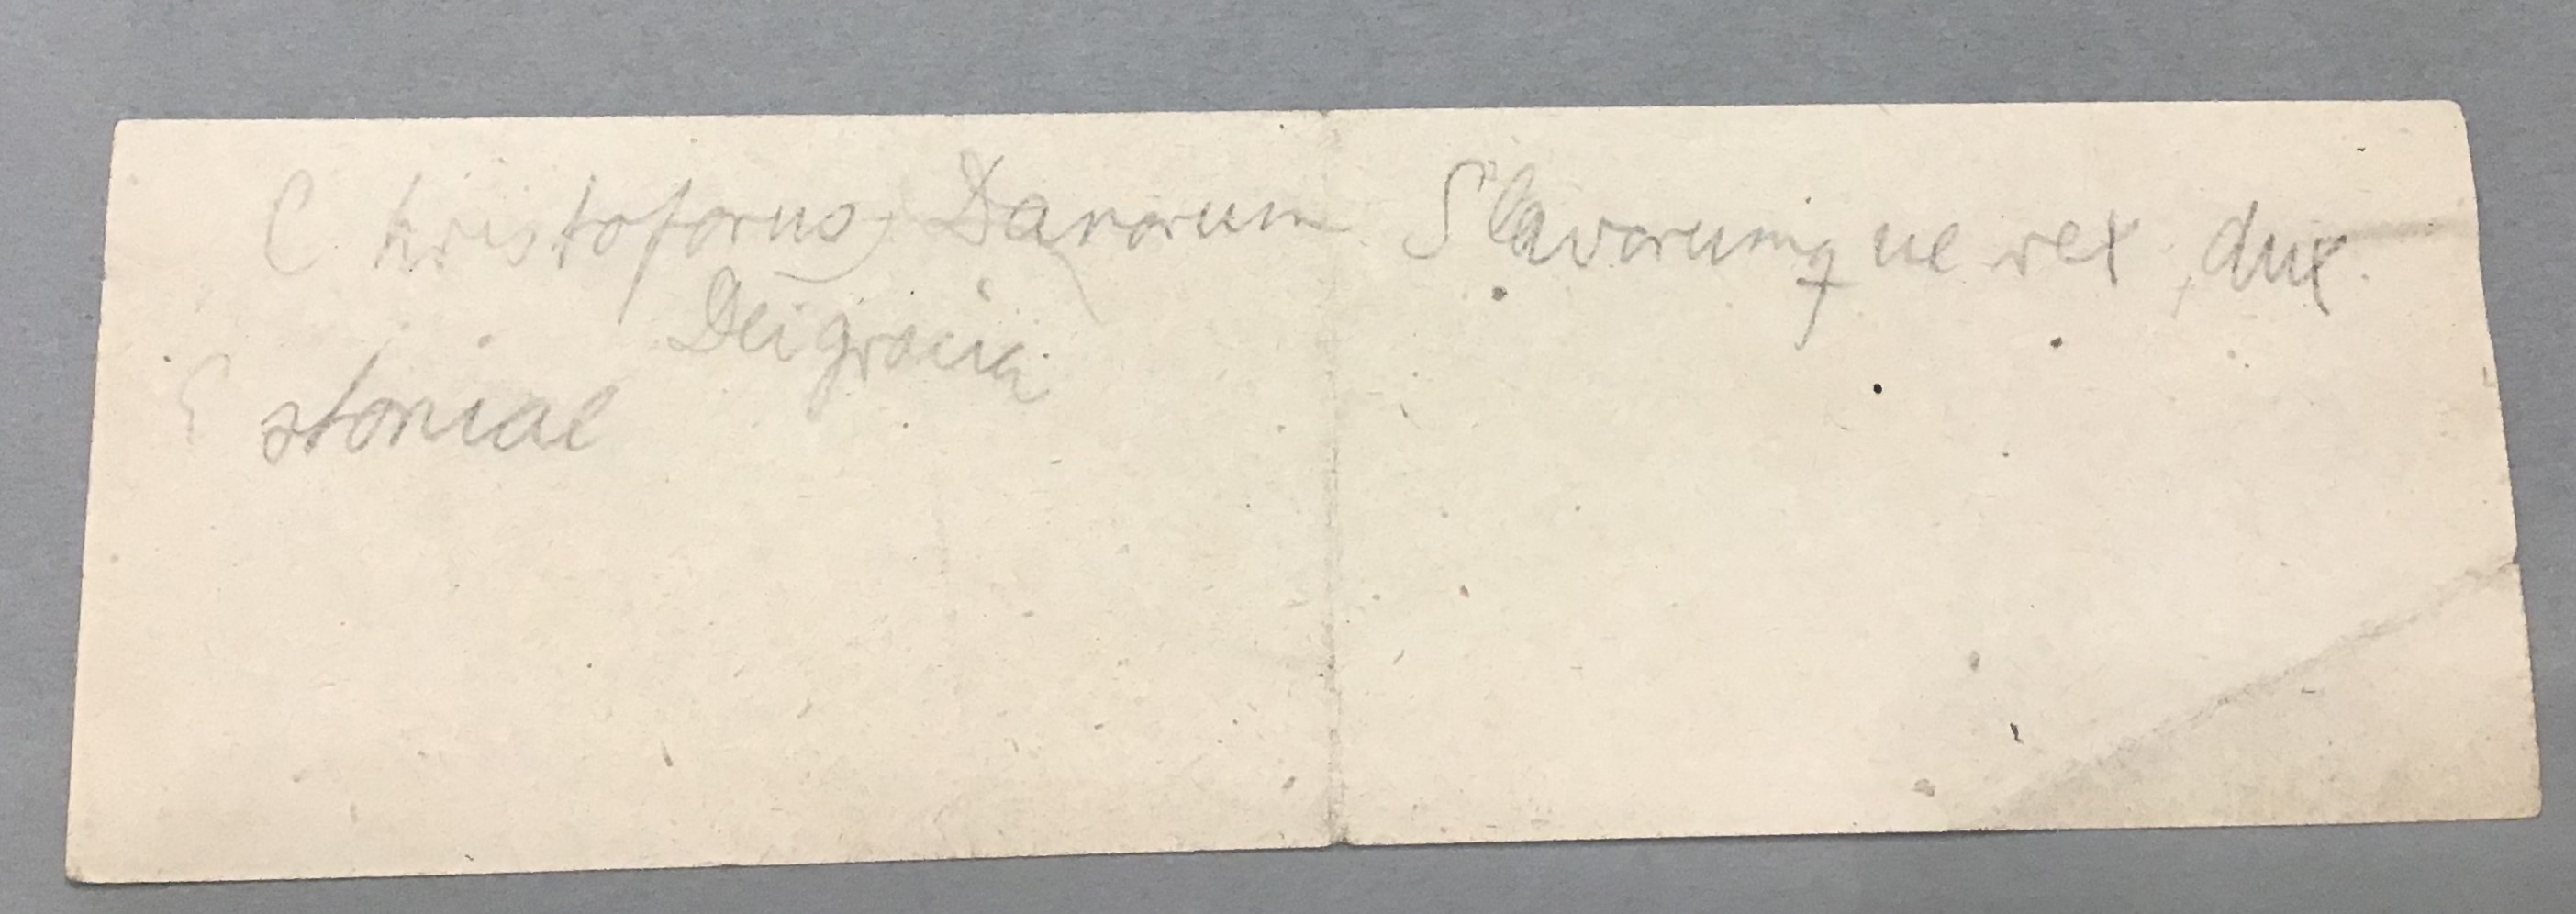 Christoforus, Danorum Slavorumque rex, dux
Dei gracia
Estoniae